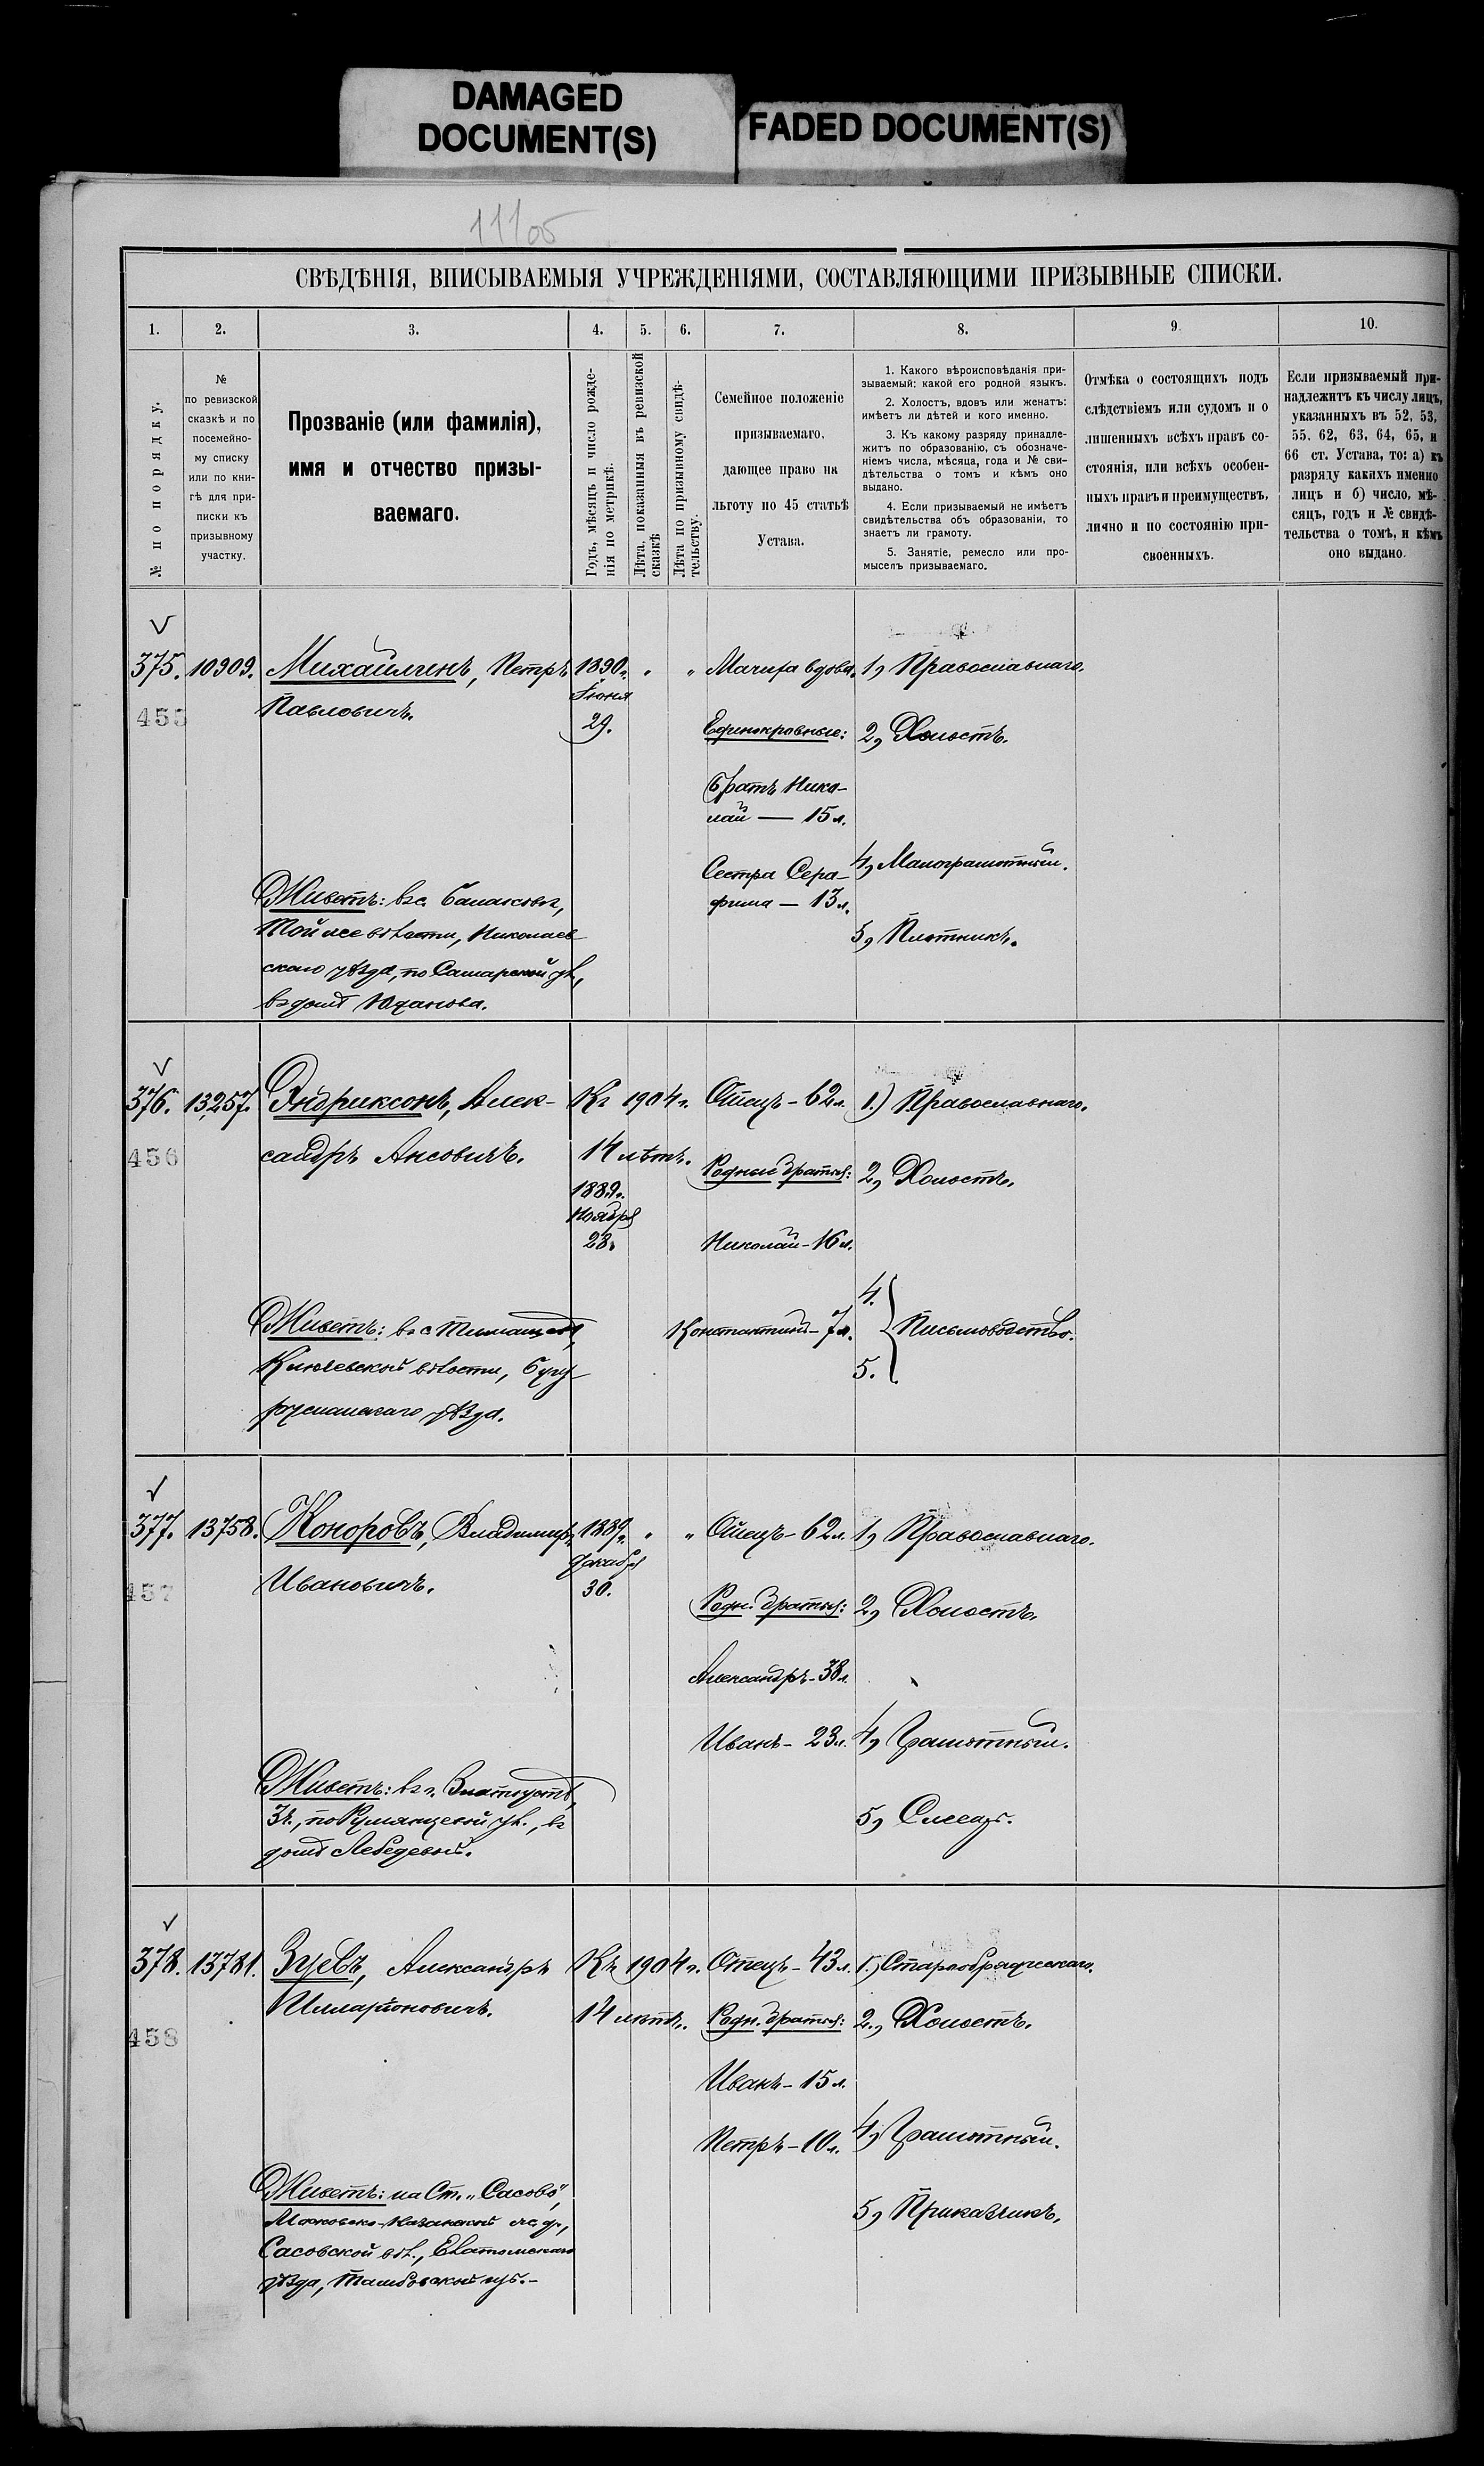 DAMAGED
DOCUMENT(S)
FADED DOCUMENT(S)
СВѢДѢНІЯ, ВПИСЫВАЕМЫЯ УЧРЕЖДЕНІЯМИ, СОСТАВЛЯЮЩИМИ ПРИЗЫВНЫЕ СПИСКИ.
1. 2. 3. 4. 5. 6. 7. 8. 9 10.
№ по порядку.
№
по ревизской
сказкѣ и по
посемейно-
му списку
или по кни-
гѣ для при-
писки къ
призывному
участку.
Прозваніе (или фамилія),
имя и отчество призы-
ваемаго.
Годъ, мѣсяцъ и число рожде-
нія по метрикѣ.
Лѣта, показанныя въ ревизской
сказкѣ
Лѣта по призывному свидѣ-
тельству.
Семейное положеніе
призываемаго,
дающее право на
льготу по 45 статьѣ
Устава.
1. Какого вѣроисповѣданія при-
зываемый: какой его родной языкъ.
2. Холостъ, вдовъ или женатъ:
имѣетъ ли дѣтей и кого именно.
3. Къ какому разряду принадле-
житъ по образованію, съ обозначе-
ніемъ числа, мѣсяца, года и № сви-
дѣтельства о томъ и кѣмъ оно
выдано.
4. Если призываемый не имѣетъ
свидѣтельства объ образованіи, то
знаетъ ли грамоту.
5. Занятіе, ремесло или про-
мыселъ призываемаго.
Отмѣка о состоящихъ подъ
слѣдствіемъ или судомъ и о
лишенныхъ всѣхъ правъ со-
стоянія, или всѣхъ особен-
ныхъ правъ и преимуществъ,
лично и по состоянію при-
своенныхъ.
Если призываемый при-
надлежитъ къ числу лицъ,
указанныхъ въ 52, 53,
55, 62, 63, 64, 65, и
66 ст. Устава, то: а) къ
разряду какихъ именно
лицъ и б) число, мѣ-
сяцъ, годъ и № свидѣ-
тельства о томъ, и кѣмъ
оно выдано.
375. 10909. Михайлинъ, Петръ
Павловичъ.
455
1890г.
Іюня
29.
Мачиха вдова.
Единокровные:
Братъ Нико-
лай — 15 л.
Сестра Сера-
фима — 13 л.
1, Православнаго.
2, Холостъ.
4, Малограмотный.
5, Плотникъ.
Живетъ: въ с. Балаковѣ,
той же волости, Николаев
скаго уѣзда, по Самарской ул.,
въ домѣ Юданова.
376. 13257. Эндриксонъ, Алек-
сандръ Ансовичъ.
456
Къ 1904 г.
14 лѣтъ.
1889г.
Ноября
28.
Отецъ - 62 л.
Родные братья:
Николай - 16 л.
Константинъ - 7 л.
1.) Православнаго.
2, Холостъ.
4.
5. Письмоводство.
Живетъ: въ с
Ключевской волости, Бугу
русланскаго уѣзда.
377. 13758. Коноровъ, Владимиръ
Ивановичъ.
457
1889г.
Декабря
30.
Отецъ - 62 л.
Родн. братья:
Александръ - 38 л.
Иванъ - 23 л.
1, Православнаго.
2, Холостъ.
4, Грамотный.
5, Слесарь.
Живетъ: въ г. Златоустѣ,
по Румянцевой ул., въ
домѣ Лебедевой.
378. 13781. Зуевъ, Александръ
Илларіоновичъ.
458
Къ 1904 г.
14 лѣтъ.
Отецъ - 43 л.
Родн. братья:
Иванъ - 15 л.
Петръ - 10 л.
1.) Старообрядческаго.
2., Холостъ.
4, Грамотный.
5, Приказчикъ.
Живетъ: на Ст. „Сасово",
Московско-Казанской ж. д.,
Сасовской вол., Елатомскаго
уѣзда, Тамбовской губ.-